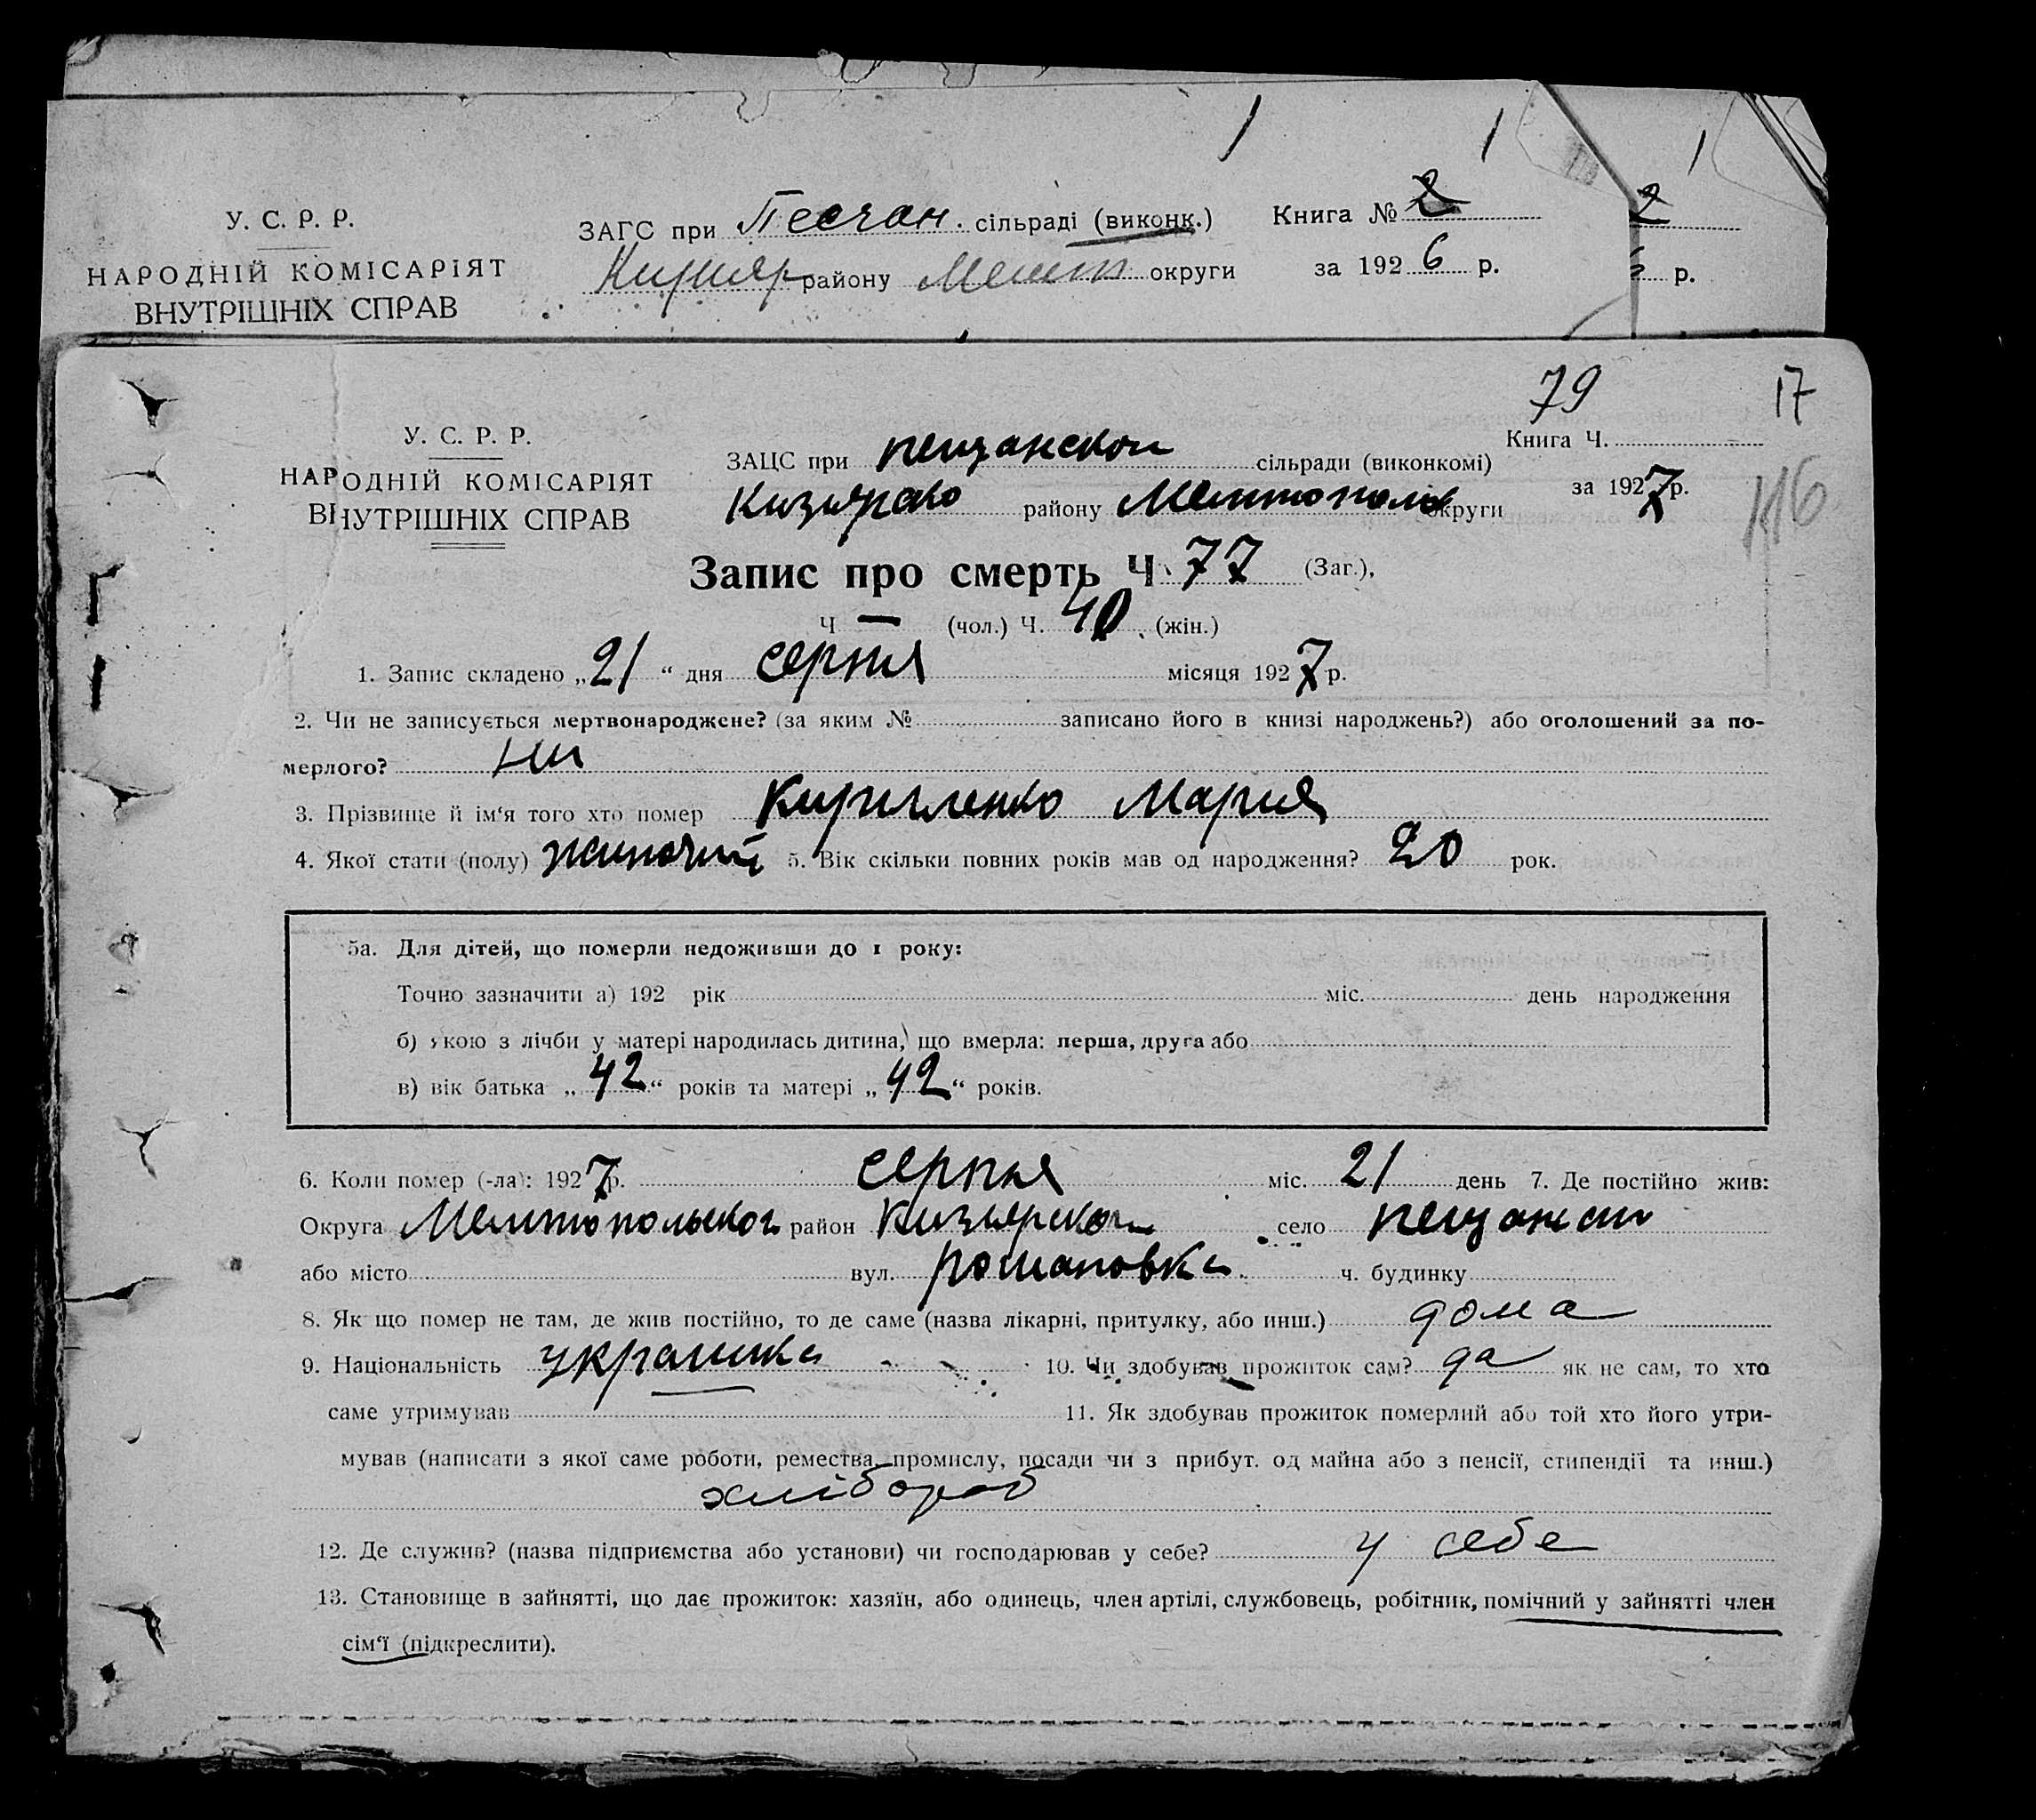 У. С. Р. Р.
НАРОДНІЙ КОМІСАРІЯТ
ВНУТРІШНІХ СПРАВ
ЗАГС при Песчан. сільраді (виконк.)
району Мелит округи
Книга № 2
за 192 6 р.
2
р.
79
17
116
У. С. Р. Р.
НАРОДНІЙ КОМІСАРІЯТ
ВНУТРІШНІХ СПРАВ
ЗАЦС при пещанской сільради (виконкомі)
району Мелитополь округи
Книга Ч.
за 1927 р.
Запис про смерть Ч. 77 (Заг.),
Ч — (чол.) Ч. 40 (жін.)
1. Запис складено „21“ дня серпня місяця 1927 р.
2. Чи не записується мертвонароджене? (за яким № записано його в книзі народжень?) або оголошений за по-
мерлого? ни
3. Прізвище й ім‘я того хто помер Кириленко Мария
4. Якої стати (полу) жиночий 5. Вік скільки повних років мав од народження? 20 рок.
5а. Для дітей, що померли недоживши до 1 року:
Точно зазначити а) 192 рік міс. день народження
б) якою з лічби у матері народилась дитина, що вмерла: перша, друга або
в) вік батька „42“ років та матері „42“ років.
6. Коли помер (-ла): 1927 р. серпня міс. 21 день 7. Де постійно жив:
Округа Мелитопольской район Кизиярской село
або місто вул. романовка ч. будинку
8. Як що помер не там, де жив постійно, то де саме (назва лікарні, притулку, або инш.) дома
9. Національність украинка 10. Чи здобував прожиток сам? да як не сам, то хто
саме утримував 11. Як здобував прожиток померлий або той хто його утри-
мував (написати з якої саме роботи, ремества, промислу, посади чи з прибут. од майна або з пенсії, стипендії та инш.)
хлібороб
12. Де служив? (назва підприємства або установи) чи господарював у себе? у себе
13. Становище в зайнятті, що дає прожиток: хазяїн, або одинець, член артілі, службовець, робітник, помічний у зайнятті член
сім‘ї (підкреслити).